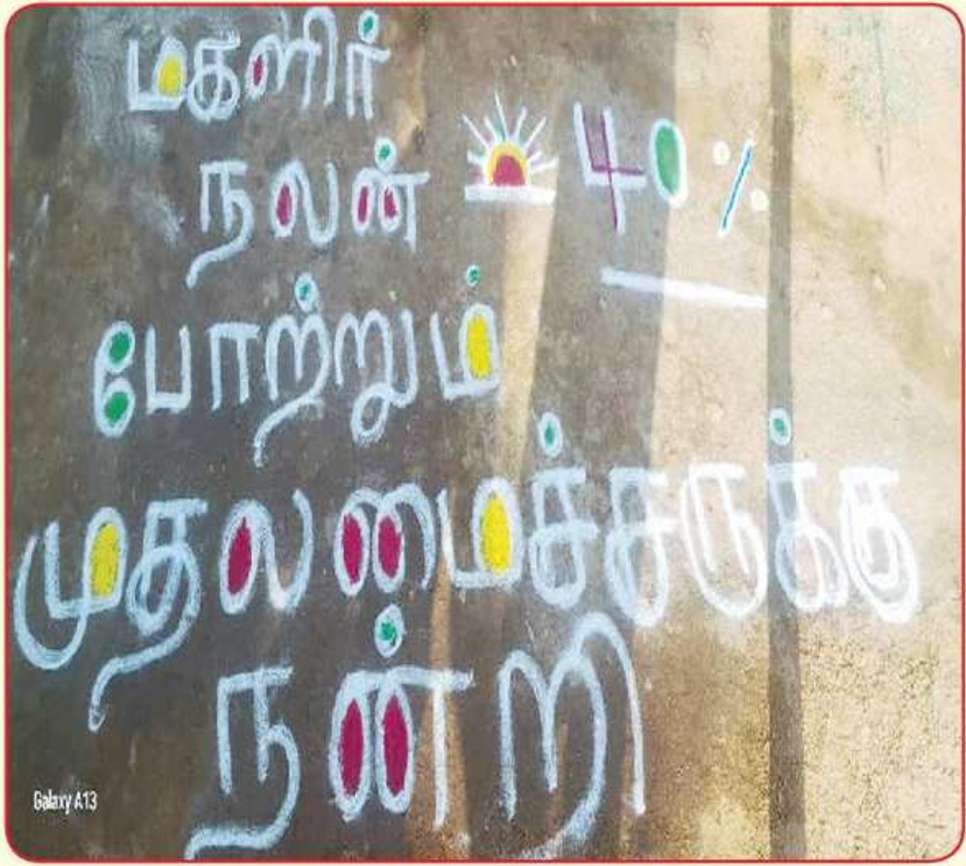 மகளிர்
நலன் 40%
போற்றும்
முதலமைச்சருக்கு
நன்றி
Galaxy A13